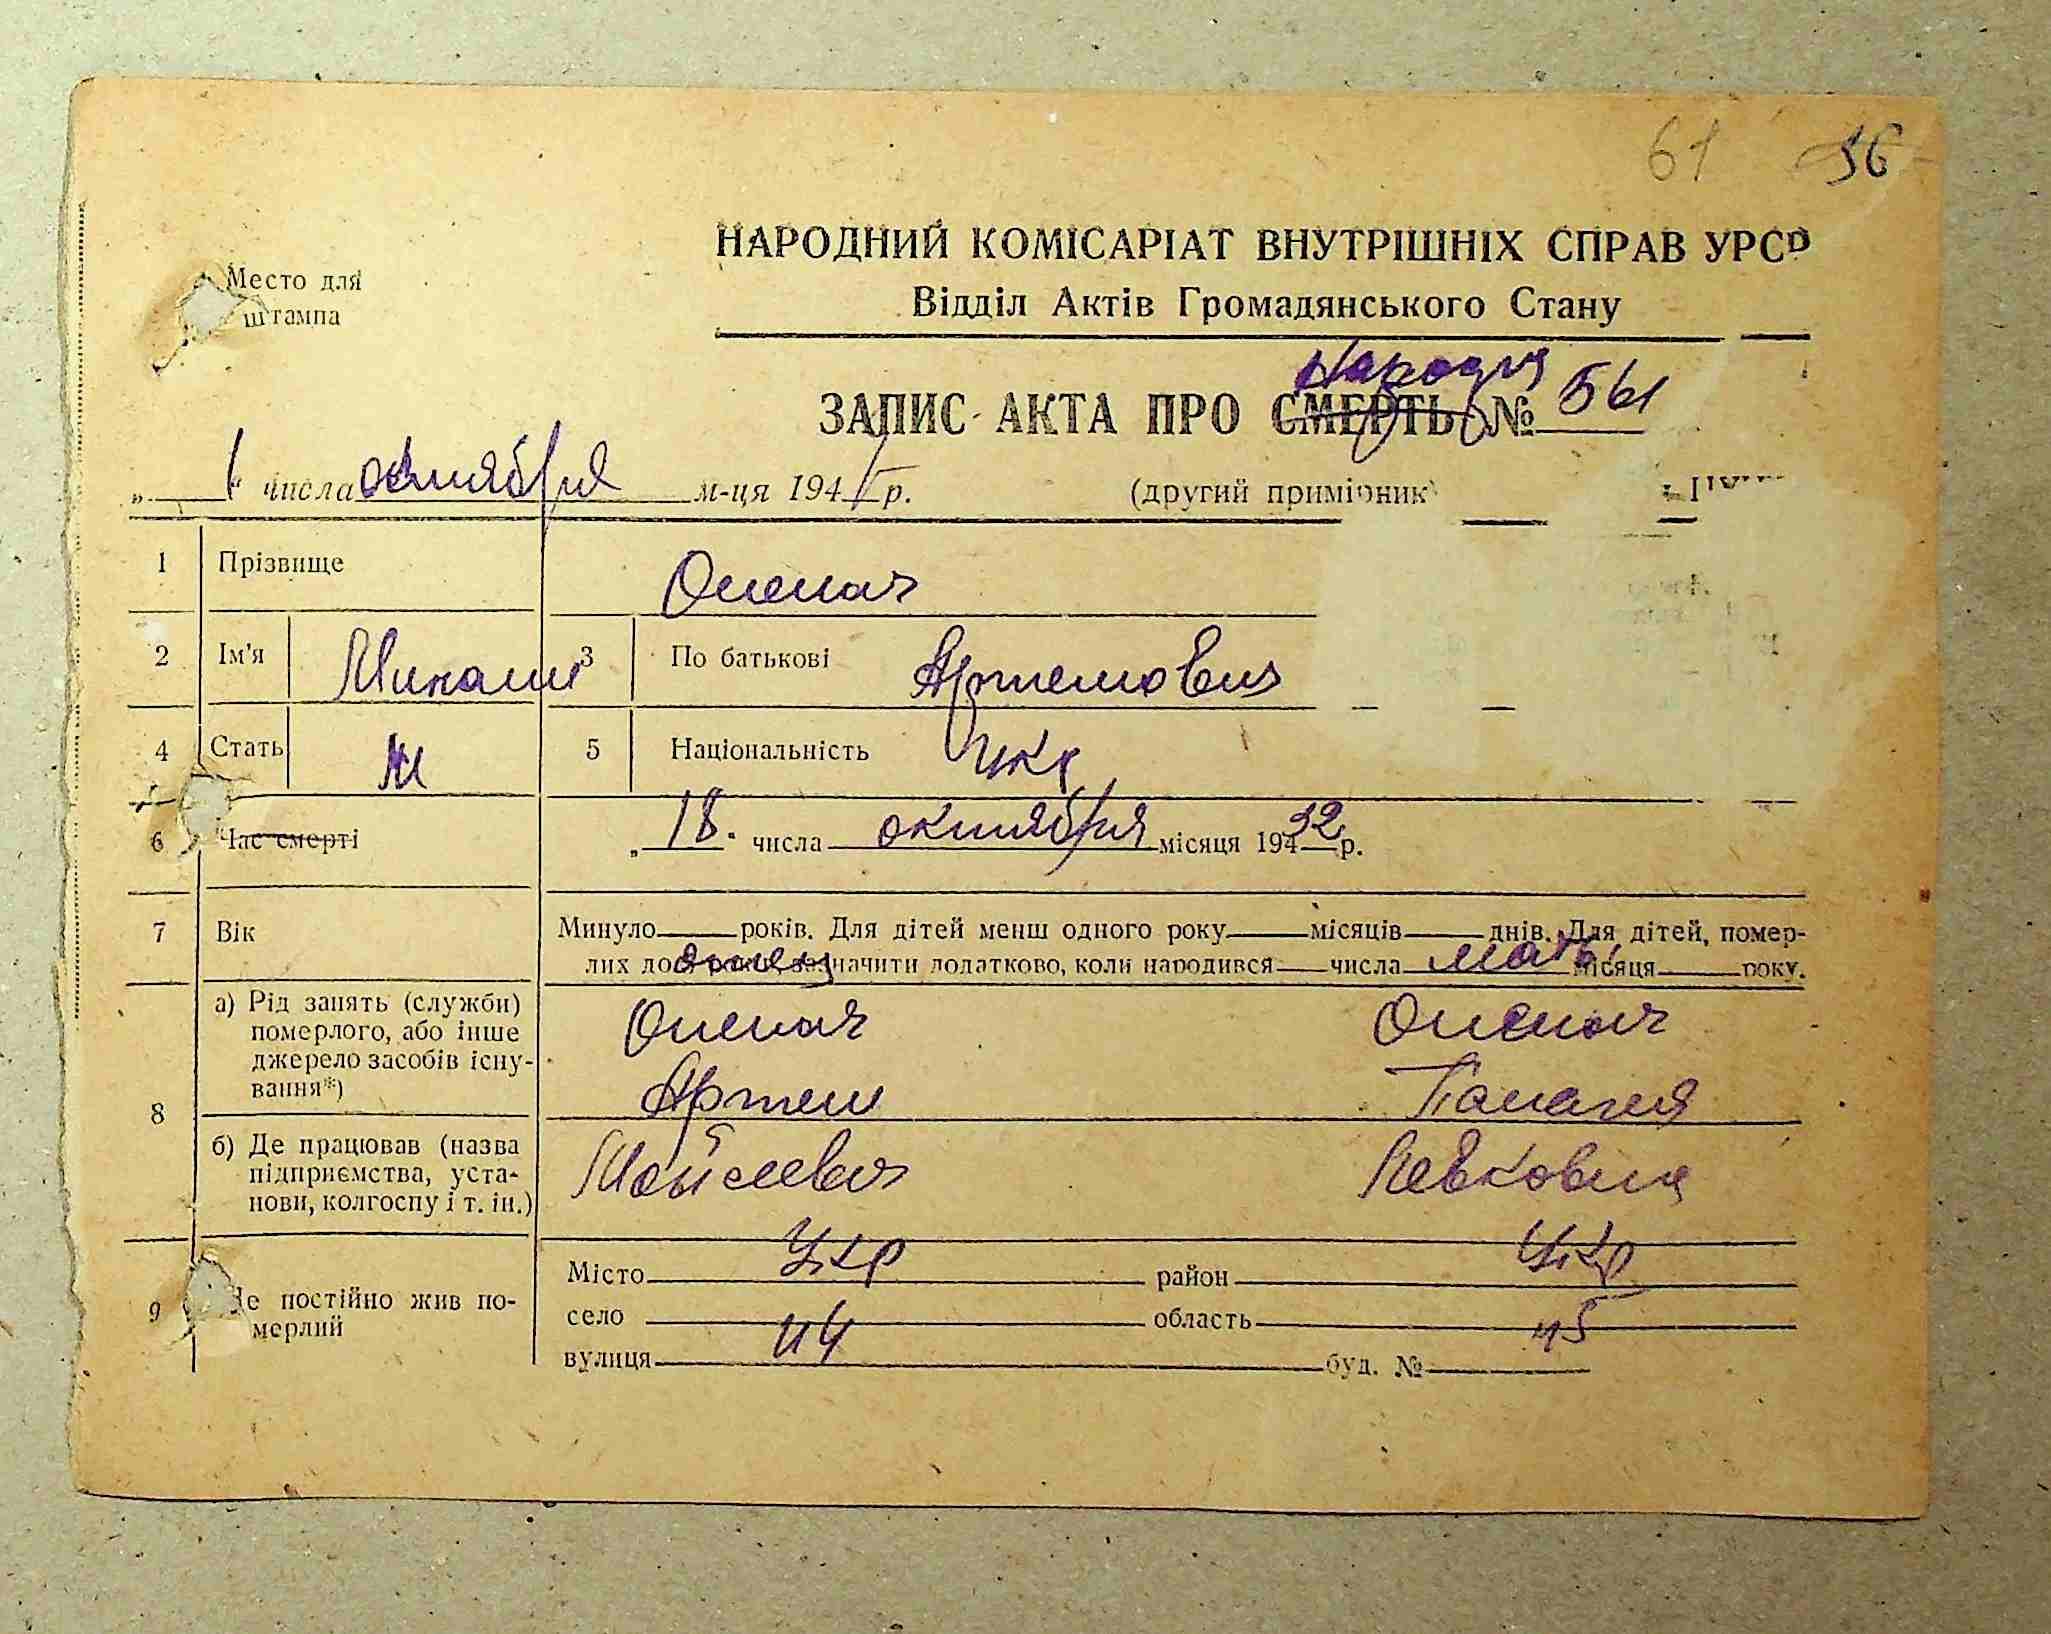 61 56
НАРОДНИЙ КОМІСАРІАТ ВНУТРІШНІХ СПРАВ УРСР
Место для штампа
Відділ Актів Громадянського Стану
ЗАПИС АКТА ПРО СМЕРТЬ № 561
„ 1 " числа октября м-ця 194 р.
(другий примірник
1 Прізвище Опенач
2 Ім'я 3 По батькові Артемович
4 Стать М 5 Національність Укр
6 Час смерті „ 18. числа октября місяця 194 32 р.
7 Вік Минуло ___ років. Для дітей менш одного року ___ місяців ___ днів. Для дітей, помер-
лих до зазначити додатково, коли народився ___ числа ___ місяця ___ року.
отец мать
8 а) Рід занять (служби) померлого, або інше джерело засобів існування*)
Опенач Опенач
Артем
б) Де працював (назва підприємства, установи, колгоспу і т. ін.)
Мойсеевич Левковна
Укр Укр
9 Де постійно жив померлий
Місто район
село область
вулиця буд. №